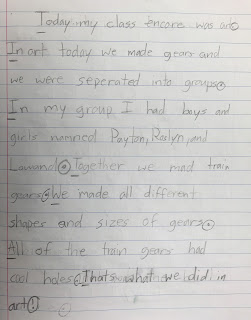 Today my class encore was art.
In art today we made gears and
we were seperated into groups.
In my group I had boys and
girls namined Payton, Roslyn, and
Together we mad train
gears. We made all different
shapes and sizes of gears.
All of the train gears had
cool holes. Thats what we did in
art!